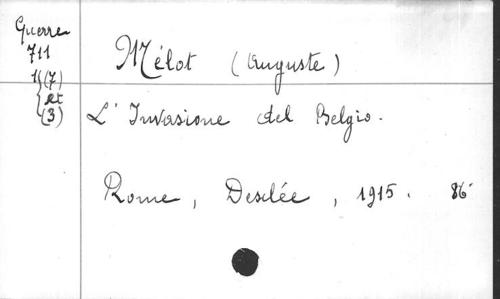 Guerre
711
1 (7)
et
(3)
Mélot (Auguste)
L'Invasione del Belgio.
Rome, Desclée, 1915. 86